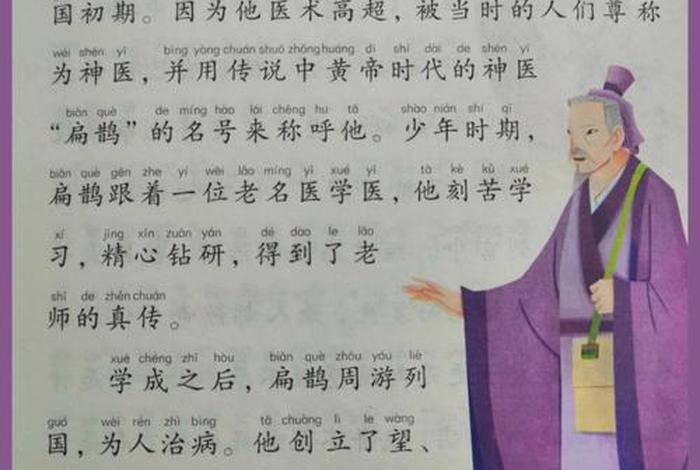 国初期。因为他医术高超，被当时的人们尊称
wéi shén yī bìng yòng chuán shuō zhōng huáng dì shí dài de shén yī
为神医，并用传说中黄帝时代的神医
biǎn què de míng hào lái chēng hu tā shào nián shí qī
“扁鹊”的名号来称呼他。少年时期，
biǎn què gēn zhe yí wèi lǎo míng yī xué yī tā kè kǔ xué
扁鹊跟着一位老名医学医，他刻苦学
xí jīng xīn zuān yán dé dào le lǎo
习，精心钻研，得到了老
shī de zhēn chuán
师的真传。
xué chéng zhī hòu biǎn què zhōu yóu liè
学成之后，扁鹊周游列
guó wèi rén zhì bìng tā chuàng lì le wàng
国，为人治病。他创立了望、